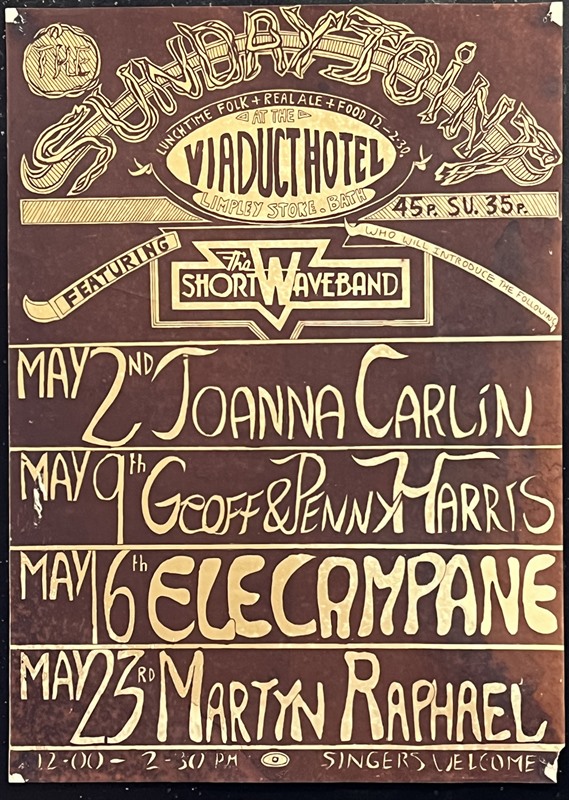 THE
SUNDAY JOINT
LUNCHTIME FOLK + REAL ALE + FOOD 12-2·30.
AT THE
VIADUCT HOTEL
LIMPLEY STOKE. BATH
45P. SU. 35P.
FEATURING
The
SHORTWAVEBAND
WHO WILL INTRODUCE THE FOLLOWING
MAY 2ND JOANNA CARLIN
MAY 9th GEOFF & PENNY HARRIS
MAY 16th ELECAMPANE
MAY 23RD MARTYN RAPHAEL
12-00 - 2-30 PM SINGERS WELCOME